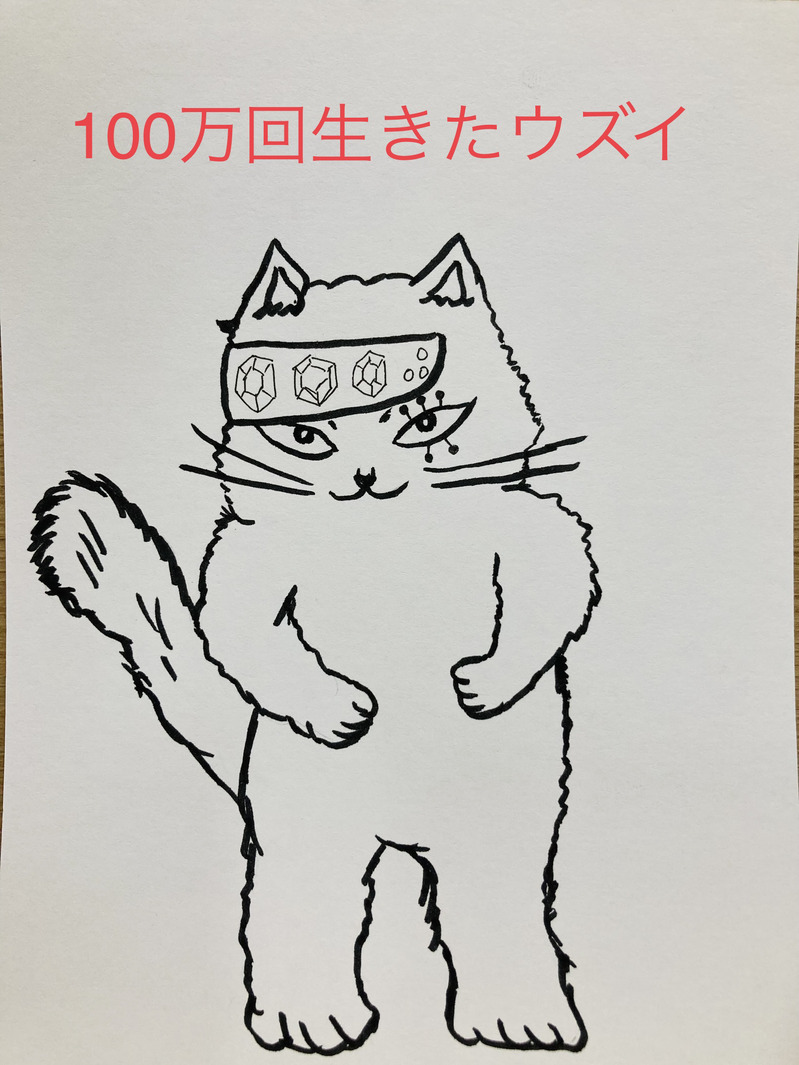 100万回生きたウズイ